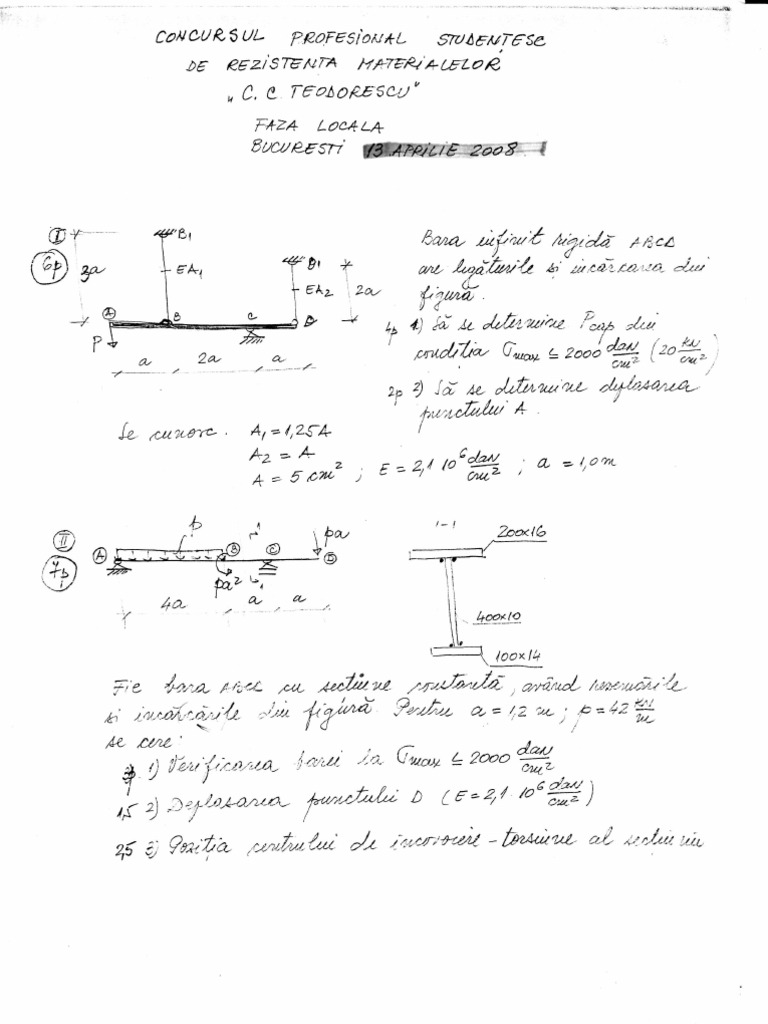 CONCURSUL PROFESIONAL STUDENȚESC
DE REZISTENTA MATERIALELOR
„C. C TEODORESCU"
FAZA LOCALA
BUCURESTI 13 APRILIE 2008
I
6p
3a
B1
EA1
B1
EA2
2a
A
B
C
D
P
a
2a
a
Bara infinit rigidă ABCD
are legăturile și încărcarea din
figură.
4p 1) Să se determine Pcap din
condiția σmax ≤ 2000 daN/cm² (20 kN/cm²)
2p 2) Să se determine deplasarea
punctului A.
Se cunosc. A1 = 1,25A
A2 = A
A = 5 cm² ; E = 2,1 10⁶ daN/cm² ; a = 1,0m
II
7p
A
p
B
1
C
pa
D
pa²
1
4a
a
a
1-1
200x16
400x10
100x14
Fie bara ABCD cu secțiune constantă, având rezemările
și încărcările din figură. Pentru a = 1,2 m ; p = 42 kN/m
se cere:
1) Verificarea barei la σmax ≤ 2000 daN/cm²
1,5 2) Deplasarea punctului D (E = 2,1 10⁶ daN/cm²)
2,5 3) Poziția centrului de încovoiere-torsiune al secțiunii